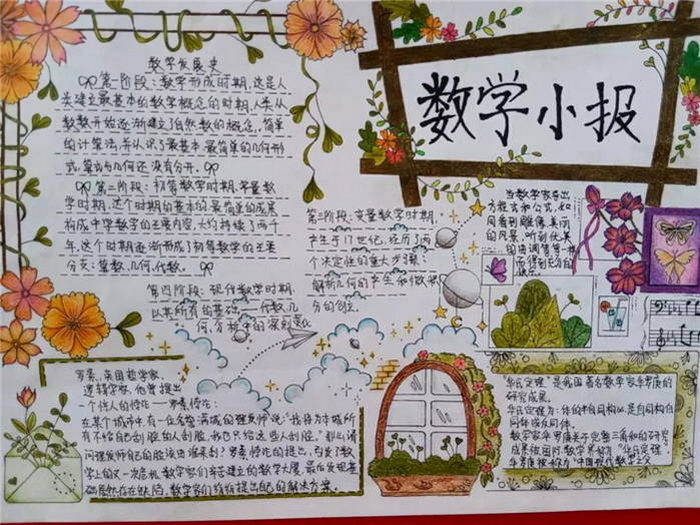 数学小报
数学发展史
第一阶段：数学形成时期，这是人
类建立最基本的数学概念的时期，人类从
数数开始逐渐建立了自然数的概念，简单
的计算法，并认识了最基本最简单的几何形
式，算术与几何还没有分开。
第二阶段：初等数学时期，常量数
学时期，这个时期的基本的最简单的成果
构成中学数学的主要内容，大约持续了两千
年，这个时期逐渐形成了初等数学的主要
分支：算数、几何、代数。
第三阶段：变量数学时期，
产生于17世纪，经历了两
个决定性的重大步骤
解析几何的产生和微积
分的创立。
第四阶段：现代数学时期
以其所有的基础——代数、几
何、分析中的深刻变化
当数学家导出
方程式和公式，如
同看到雕像、美丽
的风景，听到优美
的曲调等等一样
而得到充分的
快乐。
罗素，英国哲学家、
逻辑学家，他曾提出
一个惊人的悖论——罗素悖论：
在某个城市中，有一位名誉满城的理发师说："我将为本城所
有不给自己刮脸的人刮脸，我也只给这些人刮脸。"那么请
问理发师自己的脸该由谁来刮？罗素悖论的提出，引发了数
学上的又一次危机，数学家们辛苦建立的数学大厦，最后发现基
础居然存在缺陷，数学家们纷纷提出自己的解决方案。
"华氏定理"是我国著名数学家华罗庚的
研究成果。
华氏定理为：体的半自同构必是自同构自
同体或反同体。
数学家华罗庚关于完整三角和的研究
成果被国际数学界称为"华氏定理"，
华罗庚被称为"中国现代数学之父"